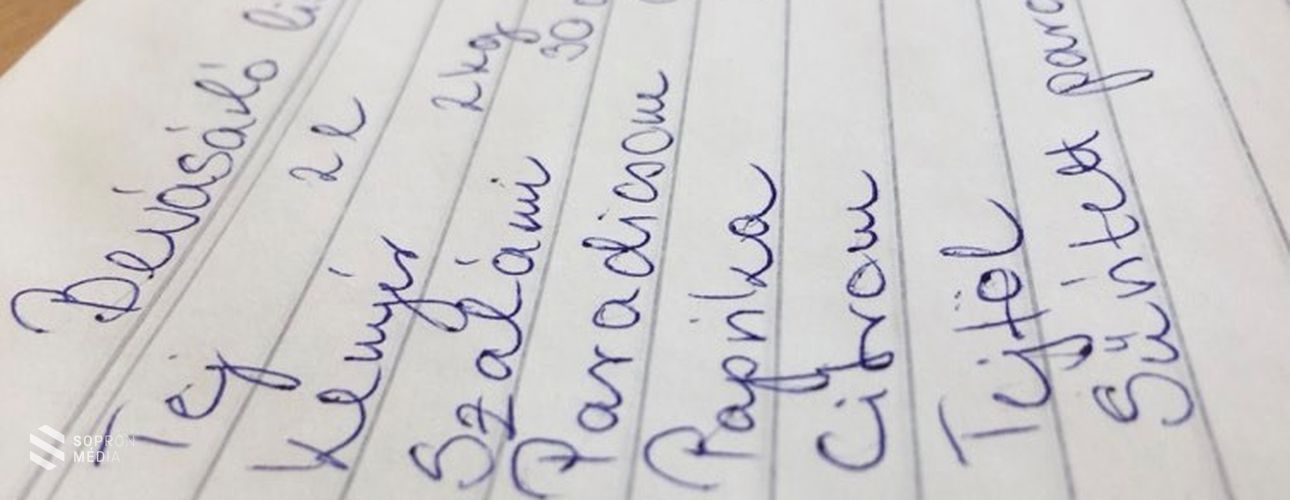 Bevásárló li
Tej 2 l
Kenyér 2 kg
Szalámi 30
Paradicsom
Paprika
Citrom
Tejföl
Sűrített para
SOPRON
MÉDIA